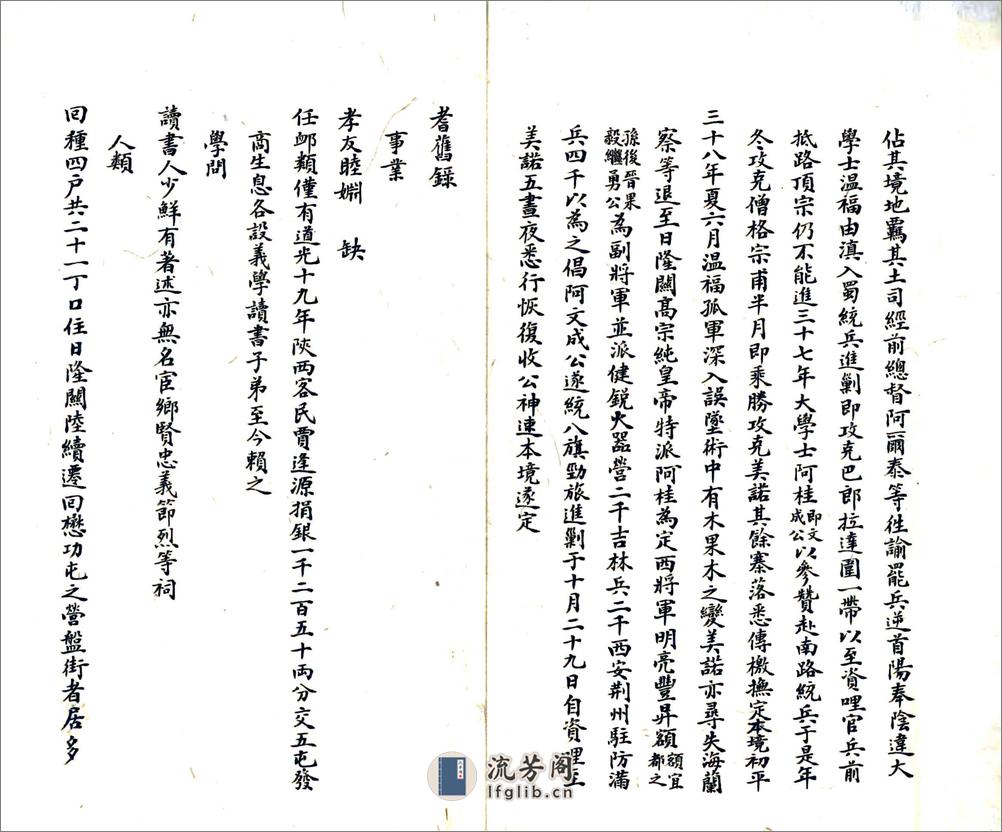 佔其境地覊其土司經前總督阿爾泰等徃諭罷兵逆首陽奉陰違大
學士温福由滇入蜀統兵進剿即攻克巴郎拉達圍一帶以至資哩官兵前
抵路頂宗仍不能進三十七年大學士阿桂即文成公以參贊赴南路統兵于是年
冬攻克僧格宗甫半月即乘勝攻克美諾其餘寨落悉傳檄撫定本境初平
三十八年夏六月温福孤軍深入誤墜術中有木果木之變美諾亦尋失海蘭
察等退至日隆關高宗純皇帝特派阿桂為定西將軍明亮豐昇額額宜都之
孫後晉果毅繼勇公為副將軍並派健銳火器營二千吉林兵二千西安荆州駐防滿
兵四千以為之倡阿文成公遂統八旗勁旅進剿于十月二十九日自資哩至
美諾五晝夜悉行恢復收公神速本境遂定
耆舊錄
事業
孝友睦婣 缺
任卹類僅有道光十九年陜西客民賈逢源捐銀一千二百五十両分交五屯發
商生息各設義學讀書子弟至今賴之
學問
讀書人少鮮有著述亦無名宦鄉賢忠義節烈等祠
人類
回種四户共二十一丁口住日隆關陸續遷回懋功屯之營盤街者居多
流芳阁
lfglib.cn